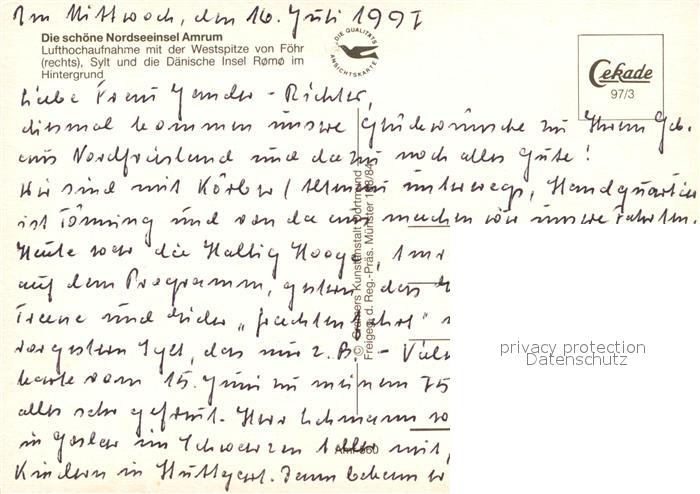 Am Mittwoch, den 16. Juli 1991
Die schöne Nordseeinsel Amrum
Lufthochaufnahme mit der Westspitze von Föhr
(rechts), Sylt und die Dänische Insel Rømø im
Hintergrund
DIE QUALITÄTS
ANSICHTSKARTE
Cekade
97/3
Liebe Frau -Richter,
diesmal kommen unsere Glückwünsche zu Ihrem Geb.
aus Nordfriesland und dazu noch alles Gute!
Wir sind mit unterwegs, Standquartier
ist Tönning und von da aus machen wir unsere Fahrten.
Heute war die Hallig Hooge,
auf dem Programm, gestern das
Treene und Eider
vorgestern Sylt, das nur z. B. -
karte vom 15. Juni zu meinem 75
alles sehr gefreut. Herr Lehmann
in Goslar im Schwarzen Adler mit,
Kindern in Stuttgart. Dann
© Cramers Kunstanstalt Dortmund
Freigeg. d. Reg.-Präs. Münster
privacy protection
Datenschutz